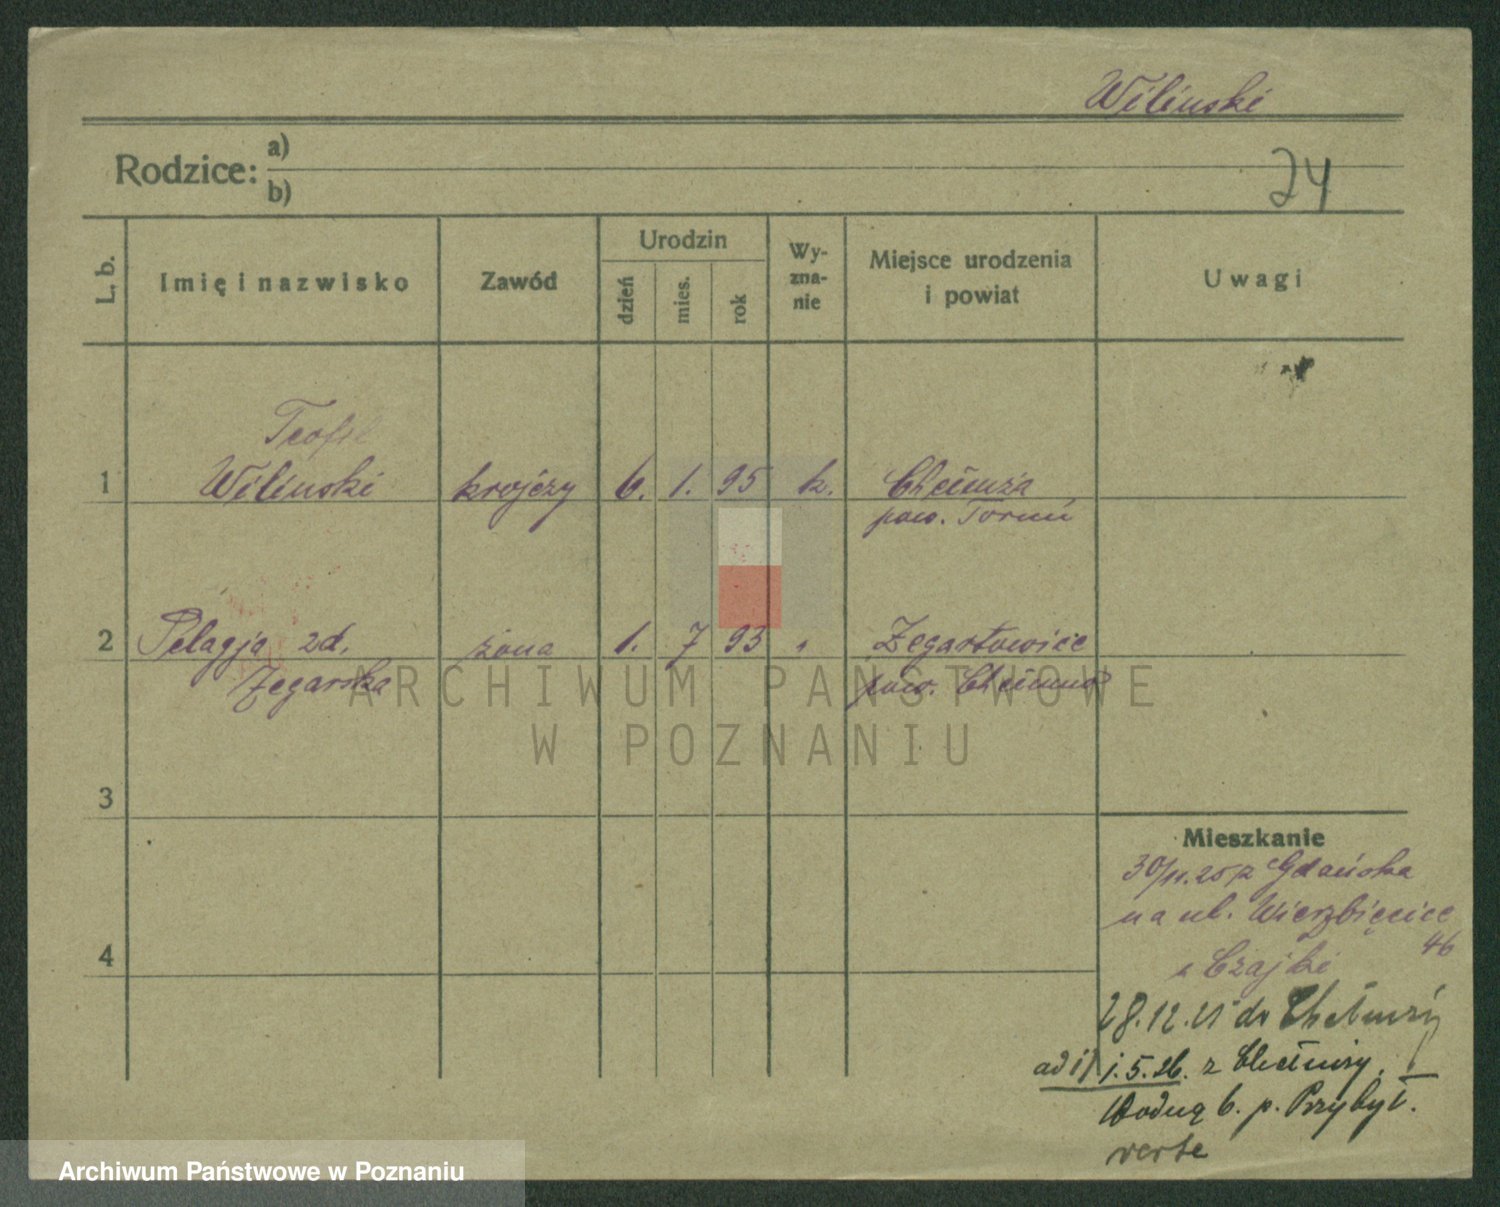 Wilinski
Rodzice: a)
b)
24
L. b.
Imię i nazwisko
Zawód
Urodzin
dzień
mies.
rok
Wy-
zna-
nie
Miejsce urodzenia
i powiat
Uwagi
Teofil
1 Wilinski krojczy 6. 1. 95 k. Chełmża
pow. Toruń
2 Pelagja zd. żona 1. 7 93 " Zegartowice
Zegarska pow. Chełmno
3
4
Mieszkanie
30/11.25 z Gdańska
na ul. Wierzbięcice
46
u Czajki
28.12.25 do Chełmży
ad 1) 1.5.26. z Chełmży.
Wodną 6. p. Przybył.
verte
ARCHIWUM PAŃSTWOWE
W POZNANIU
Archiwum Państwowe w Poznaniu